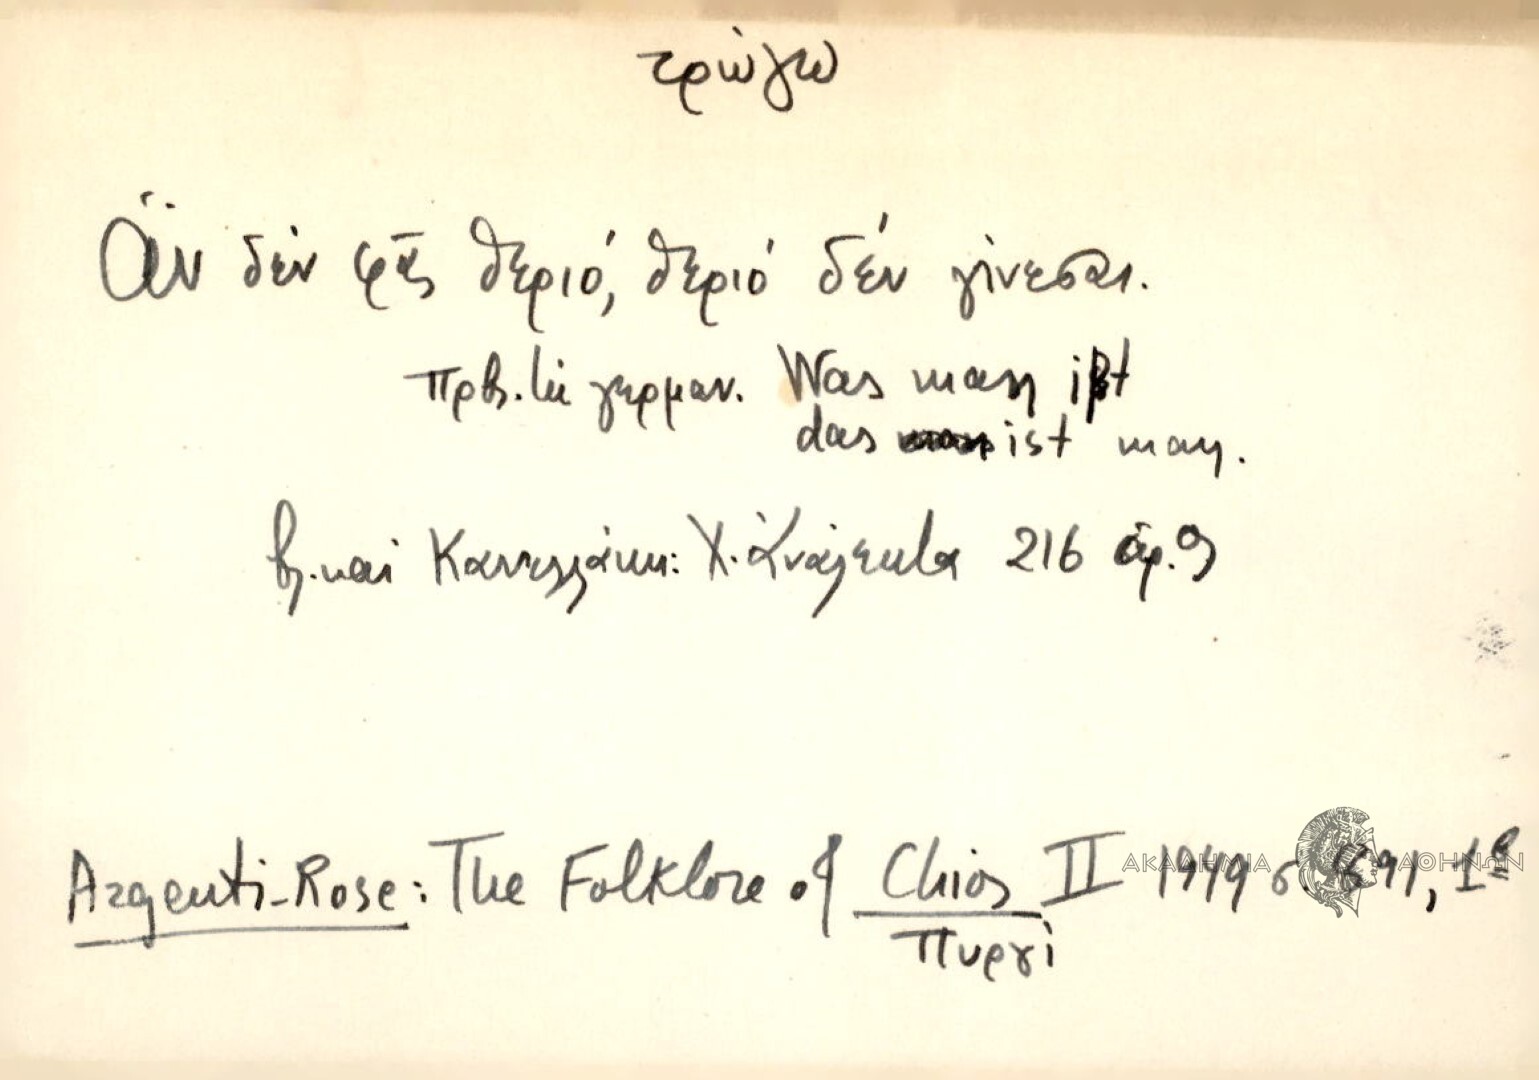 τρώγω
Ἄν δὲν φᾶς θεριό, θεριό δέν γίνεσαι.
πρβ. τὸ γερμαν. Was man ißt
das ist man.
βλ. καὶ Καννελλάκη: Χ. Ἀνάλεκτα 216 ἀρ. 9
Argenti-Rose: The Folklore of Chios II 1949 σ. 891, 1β
Πυργὶ
ΑΚΑΔΗΜΙΑ ΑΘΗΝΩΝ